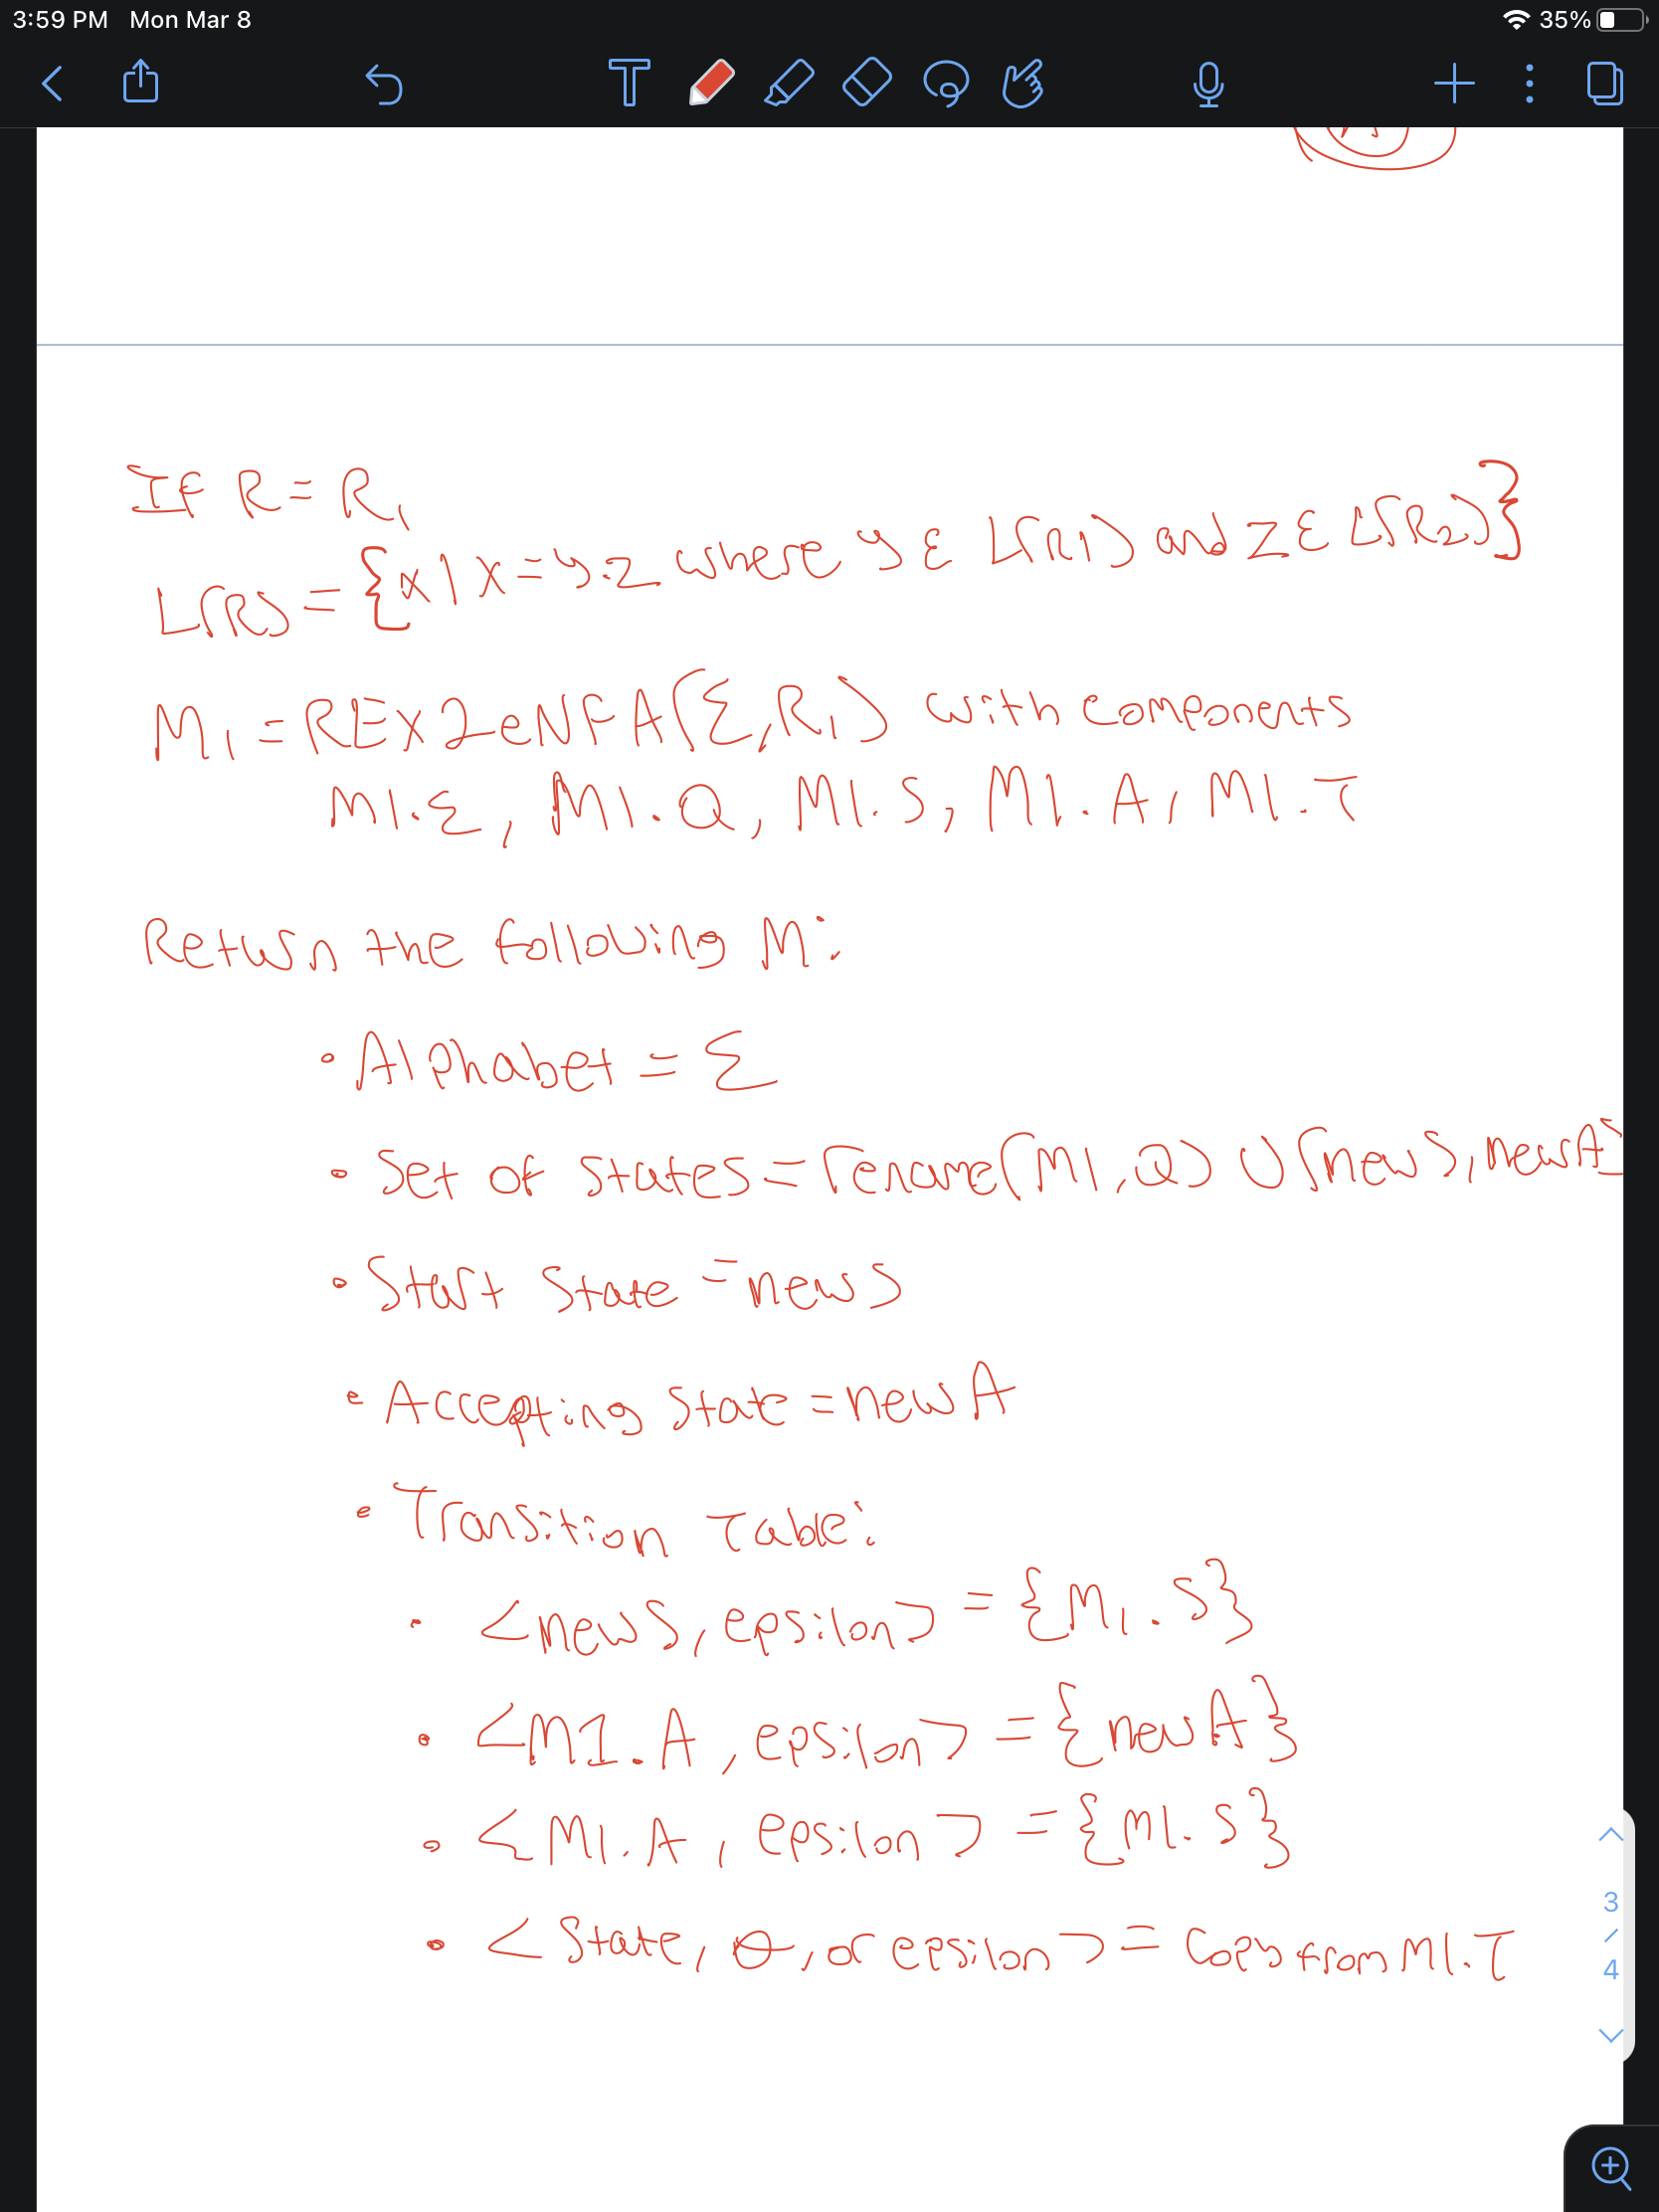 3:59 PM Mon Mar 8 35%
If R = R₁
L(R) = {x | x = y.z where y ε L(R1) and z ε L(R₂)}
M₁ = REX2eNFA(Σ, R₁) with components
M1.Σ, M1.Q, M1.S, M1.A, M1.T
Return the following M:
• Alphabet = Σ
• Set of states = rename(M1,Q) ∪ {newS, newA}
• Start State = newS
• Accepting State = newA
• Transition Table:
• <newS, epsilon> = {M₁.S}
• <M1.A, epsilon> = {newA}
• <M1.A, epsilon> = {M1.S}
• <State, θ, or epsilon> = Copy from M1.T
3
/
4